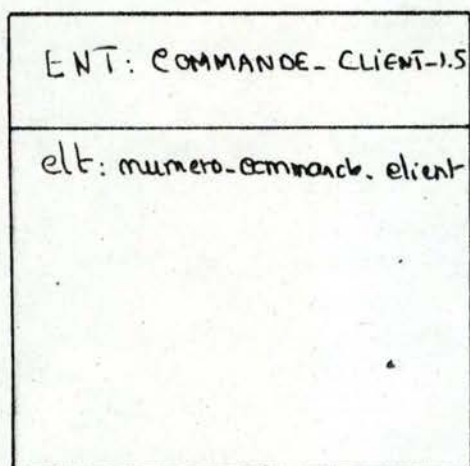 ENT: COMMANDE_CLIENT_1.5
elt: numero_commande_client